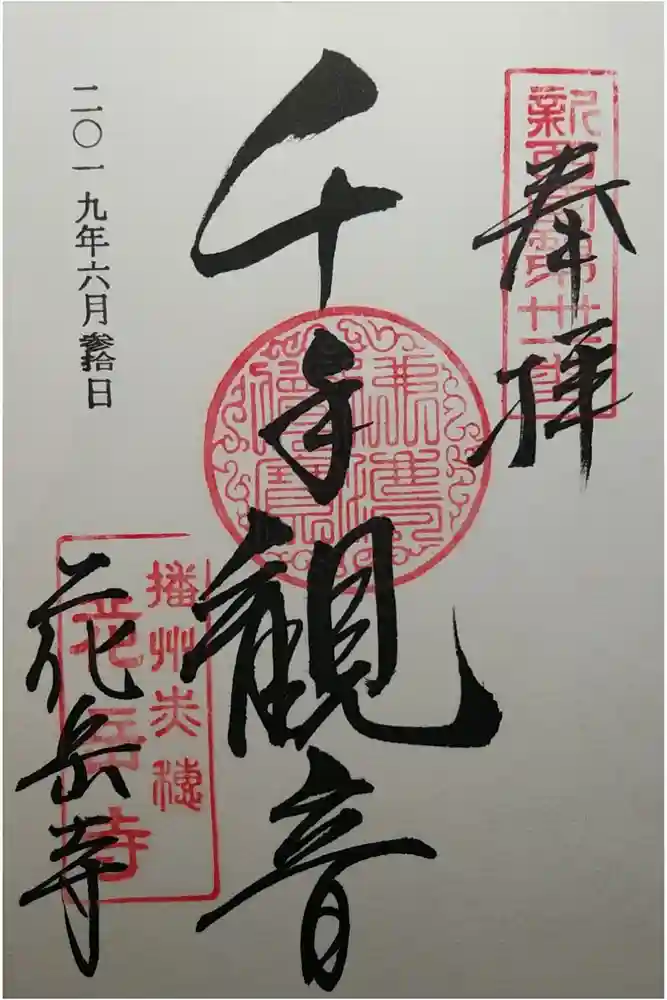 奉拝
新西国第卅一番
千手観音
二〇一九年六月参拾日
播州赤穂
花岳寺
花岳寺